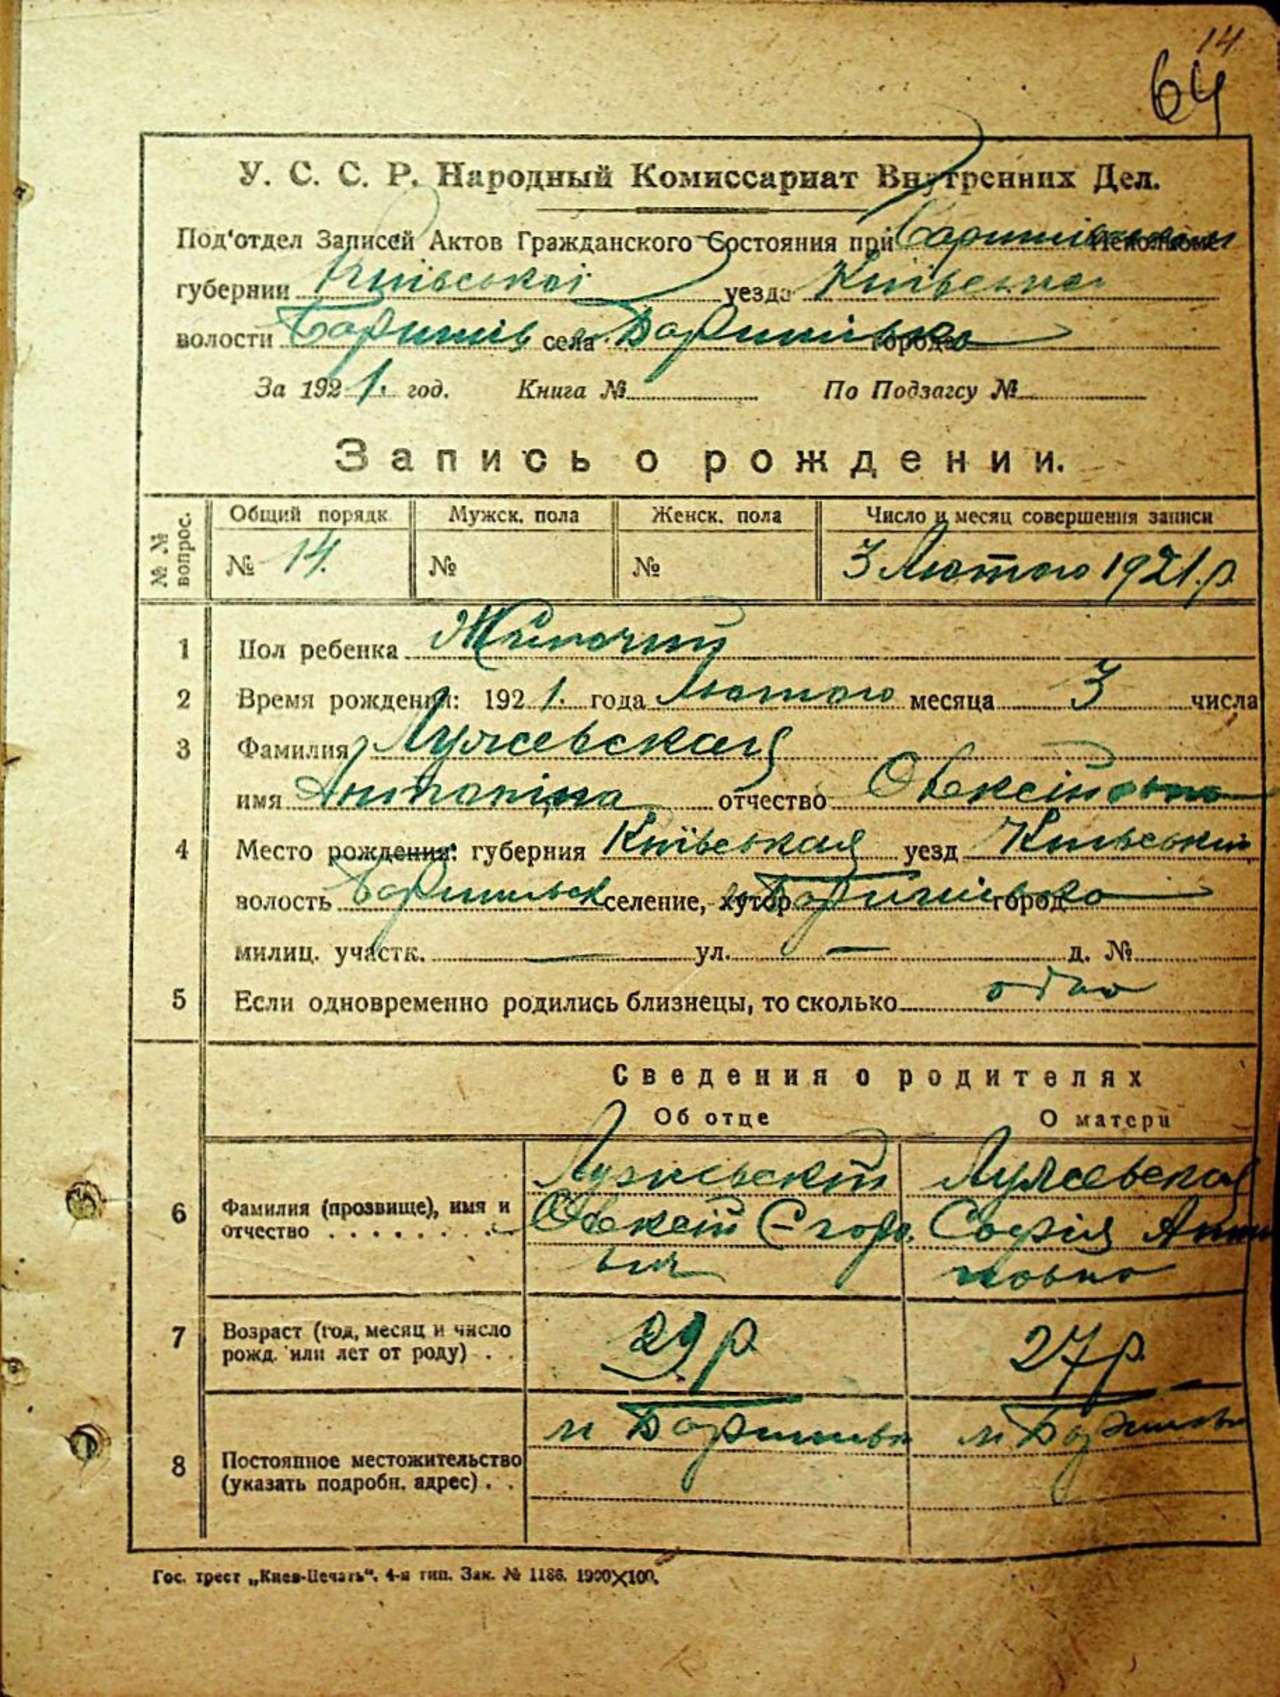 14
64
У. С. С. Р. Народный Комиссариат Внутренних Дел.
Под'отдел Записей Актов Гражданского Состояния при
губернии Київської уезда Київська
волости Баришів села Баришівка города
За 1921. год. Книга № По Подзагсу №
Запись о рождении.
№ № вопрос. Общий порядк. Мужск. пола Женск. пола Число и месяц совершения записи
№ 14. № № 3 Лютого 1921.р
1 Пол ребенка Жіночий
2 Время рождения: 1921. года Лютого месяца 3 числа
3 Фамилия Лужевская
имя Антоніна отчество Овксіївна
4 Место рождения: губерния Київськая уезд Київський
волость Баришівск селение, хутор Баришівка город
милиц. участк. — ул. — д. №
5 Если одновременно родились близнецы, то сколько одно
Сведения о родителях
Об отце О матери
6 Фамилия (прозвище), имя и отчество Лужевский Лужевская
Овксій Єгоро София
вич
7 Возраст (год, месяц и число рожд. или лет от роду) 29 р. 27 р.
8 Постоянное местожительство (указать подробн. адрес) м Баришівк м Баришівк
Гос. трест „Киев-Печать“. 4-я тип. Зак. № 1186. 1900×100.